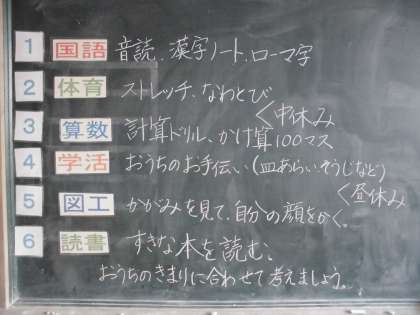 1 国語 音読、漢字ノート、ローマ字
2 体育 ストレッチ、なわとび
<中休み
3 算数 計算ドリル、かけ算100マス
4 学活 おうちのお手伝い(皿あらい、そうじなど)
<昼休み
5 図工 かがみを見て、自分の顔をかく。
6 読書 すきな本を読む、
おうちのきまりに合わせて考えましょう。